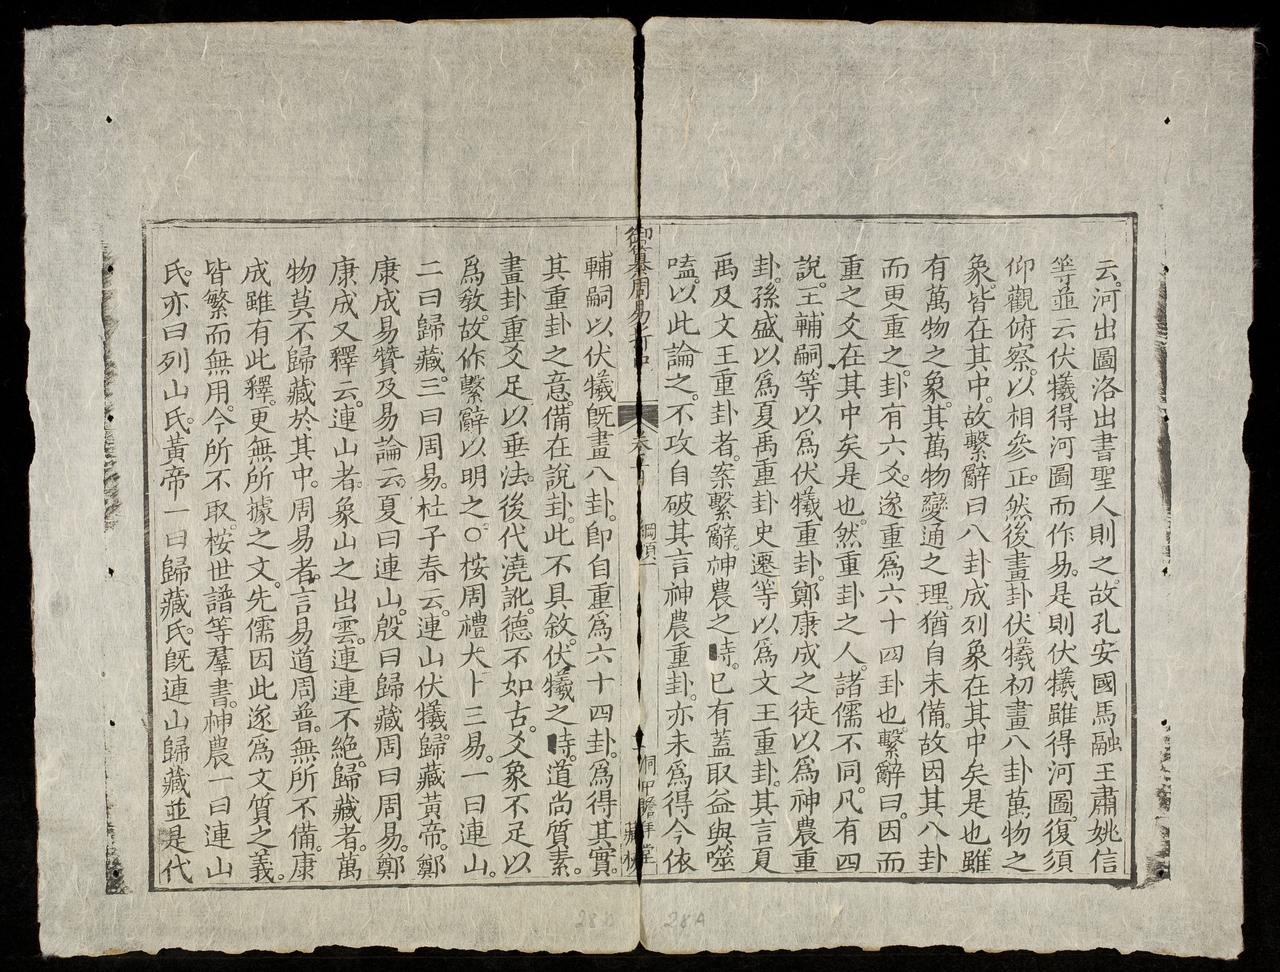 云。河出圖洛出書聖人則之。故孔安國馬融王肅姚信
等並云伏犧得河圖而作易。是則伏犧雖得河圖。復須
仰觀俯察。以相參正。然後畫卦伏犧初畫八卦萬物之
象。皆在其中。故繫辭曰八卦成列象在其中矣是也。雖
有萬物之象。其萬物變通之理。猶自未備。故因其八卦
而更重之。卦有六爻。遂重爲六十四卦也。繫辭曰。因而
重之爻在其中矣是也。然重卦之人。諸儒不同。凡有四
說。王輔嗣等以爲伏犧重卦。鄭康成之徒以爲神農重
卦。孫盛以爲夏禹重卦史遷等以爲文王重卦。其言夏
禹及文王重卦者。案繫辭。神農之時。已有蓋取益與噬
嗑。以此論之。不攻自破其言神農重卦。亦未爲得今依
御纂周易折中
卷首
綱領一
藏板
輔嗣以伏犧旣畫八卦。卽自重爲六十四卦。爲得其實。
其重卦之意。備在說卦。此不具敘。伏犧之時。道尚質素。
畫卦重爻足以垂法。後代澆訛。德不如古。爻象不足以
爲敎。故作繫辭以明之。○按周禮大卜三易。一曰連山。
二曰歸藏。三曰周易。杜子春云。連山伏犧。歸藏黃帝。鄭
康成易贊及易論云。夏曰連山。殷曰歸藏周曰周易。鄭
康成又釋云。連山者。象山之出雲。連連不絕。歸藏者。萬
物莫不歸藏於其中。周易者。言易道周普。無所不備。康
成雖有此釋。更無所據之文。先儒因此遂爲文質之義。
皆繁而無用。今所不取。按世譜等羣書。神農一曰連山
氏。亦曰列山氏。黃帝一曰歸藏氏。旣連山歸藏並是代
28B
28A